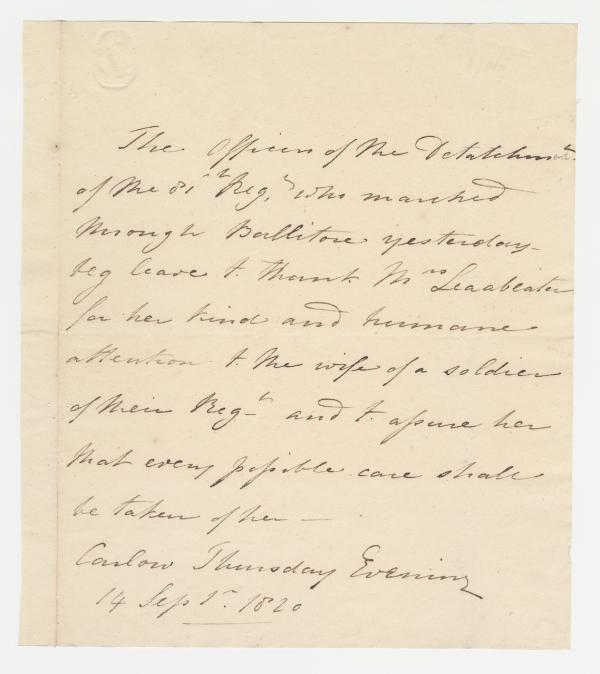 The Officers of the Detatchmt
of the 81st Regt who marched
through Ballitore yesterday
beg leave to thank Mrs Leadbeater
for her kind and humane
attention to the wife of a soldier
of their Regt and to assure her
that every possible care shall
be taken of her —
Carlow Thursday Evening
14 Septr. 1820